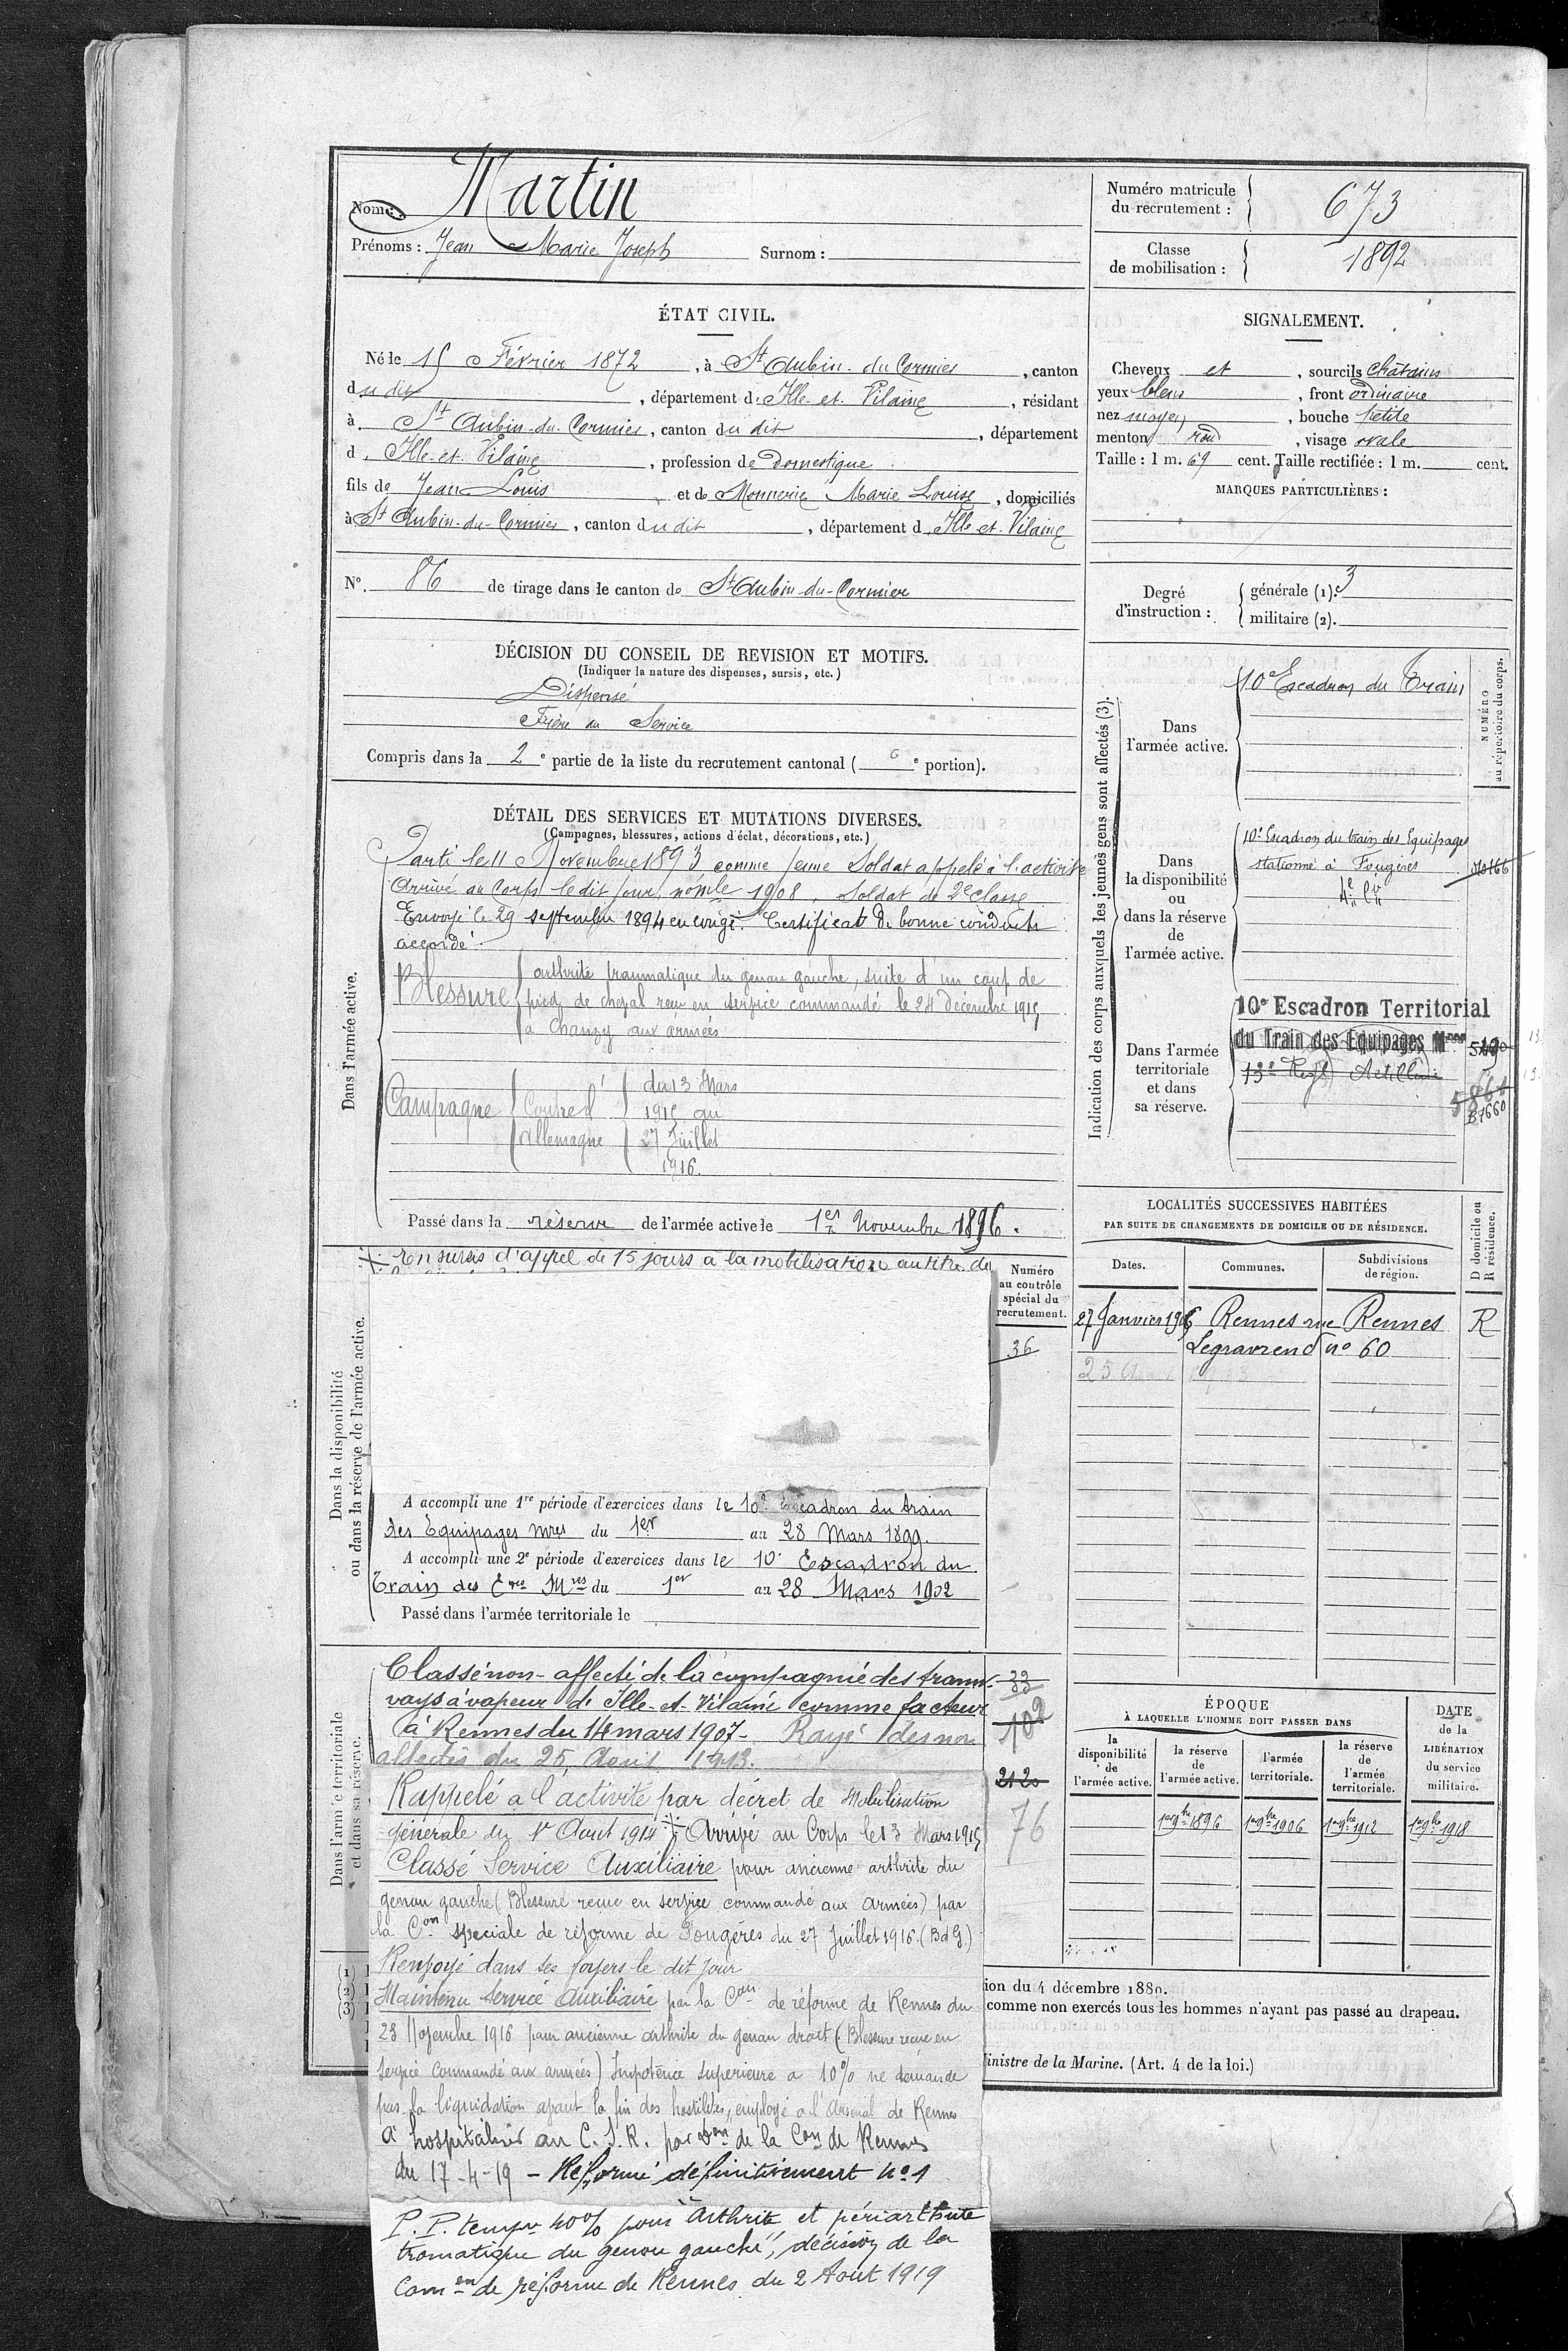 Nom : Martin
Prénoms : Jean Marie Joseph Surnom :
Numéro matricule du recrutement : 673
Classe de mobilisation : 1892
ÉTAT CIVIL.
Né le 15 Février 1872, à St Aubin-du-Cormier, canton
du dit, département d'Ille-et-Vilaine, résidant
à St Aubin-du-Cormier, canton du dit, département
d'Ille-et-Vilaine, profession de Domestique
fils de Jean Louis et de Monnerie Marie Louise, domiciliés
à St Aubin-du-Cormier, canton du dit, département d'Ille et Vilaine
N° 86 de tirage dans le canton de St Aubin-du-Cormier
SIGNALEMENT.
Cheveux et, sourcils châtains
yeux bleus, front ordinaire
nez moyen, bouche petite
menton rond, visage ovale
Taille : 1 m. 69 cent. Taille rectifiée : 1 m. cent.
MARQUES PARTICULIÈRES :
Degré d'instruction : générale (1). 3
militaire (2).
DÉCISION DU CONSEIL DE REVISION ET MOTIFS.
(Indiquer la nature des dispenses, sursis, etc.)
Dispensé
Frère au Service
Compris dans la 2e partie de la liste du recrutement cantonal ( e portion).
DÉTAIL DES SERVICES ET MUTATIONS DIVERSES.
(Campagnes, blessures, actions d'éclat, décorations, etc.)
Dans l'armée active.
Parti le 11 Novembre 1893 comme jeune Soldat appelé à l'activité
Arrivé au Corps le dit jour, n° mle 1908, Soldat de 2e classe
Envoyé le 29 septembre 1894 en congé. Certificat de bonne conduite
accordé.
Blessure arthrite traumatique du genou gauche, suite d'un coup de
pied de cheval reçu en service commandé le 24 Décembre 1915
à Chanzy aux armées
Campagne Contre l'Allemagne du 13 Mars
1915 au
27 Juillet
1916.
Passé dans la réserve de l'armée active le 1er Novembre 1896.
Indication des corps auxquels les jeunes gens sont affectés (3).
NUMÉRO au répertoire du corps.
Dans l'armée active.
10e Escadron du Train
Dans la disponibilité ou dans la réserve de l'armée active.
10e Escadron du train des Equipages
stationné à Fougères
Dans l'armée territoriale et dans sa réserve.
10e Escadron Territorial
du Train des Equipages Mres
13e Regt Artillerie
Dans la disponibilité ou dans la réserve de l'armée active.
En sursis d'appel de 15 jours à la mobilisation au titre du
Numéro au contrôle spécial du recrutement.
36
A accompli une 1re période d'exercices dans le 10e Escadron du train
des Equipages mres du 1er au 28 Mars 1899.
A accompli une 2e période d'exercices dans le 10e Escadron du
Train des Eges Mres du 1er au 28 Mars 1902
Passé dans l'armée territoriale le
LOCALITÉS SUCCESSIVES HABITÉES
PAR SUITE DE CHANGEMENTS DE DOMICILE OU DE RÉSIDENCE.
Dates. Communes. Subdivisions de région. D domicile ou R résidence.
27 Janvier 1906 Rennes rue Rennes R
Legraverend n° 60
Dans l'armée territoriale et dans sa réserve.
Classé non-affecté de la compagnie des tram-
vays à vapeur d'Ille-et-Vilaine comme facteur
à Rennes du 14 mars 1907 - Rayé des non
affectés du 25 Août 1913.
33
102
2120
76
Rappelé à l'activité par décret de Mobilisation
générale du 1er Août 1914 Arrivé au Corps le 13 Mars 1915
Classé Service Auxiliaire pour ancienne arthrite du
genou gauche (Blessure reçue en service commandé aux Armées) par
la Con spéciale de réforme de Fougères du 27 Juillet 1916. (BdG)
Renvoyé dans ses foyers le dit jour
Maintenu Service Auxiliaire par la Con de réforme de Rennes du
23 Novembre 1916 pour ancienne arthrite du genou droit (Blessure reçue en
service commandé aux armées) Impotence supérieure à 10% ne demande
pas la liquidation avant la fin des hostilités, employé à l'Arsenal de Rennes
à hospitaliser au C.S.R. par don de la Con de Rennes
du 17-4-19 - Réformé définitivement n° 1
P.P. tempre 40% pour "Arthrite et périarthrite
tromatique du genou gauche", décision de la
Comon de réforme de Rennes du 2 Août 1919
ÉPOQUE
À LAQUELLE L'HOMME DOIT PASSER DANS
la disponibilité de l'armée active. la réserve de l'armée active. l'armée territoriale. la réserve de l'armée territoriale. DATE de la LIBÉRATION du service militaire.
1er 9bre 1896 1er 9bre 1906 1er 9bre 1912 1er 9bre 1918
(1)
(2)
(3)
ion du 4 décembre 1889.
comme non exercés tous les hommes n'ayant pas passé au drapeau.
Ministre de la Marine. (Art. 4 de la loi.)